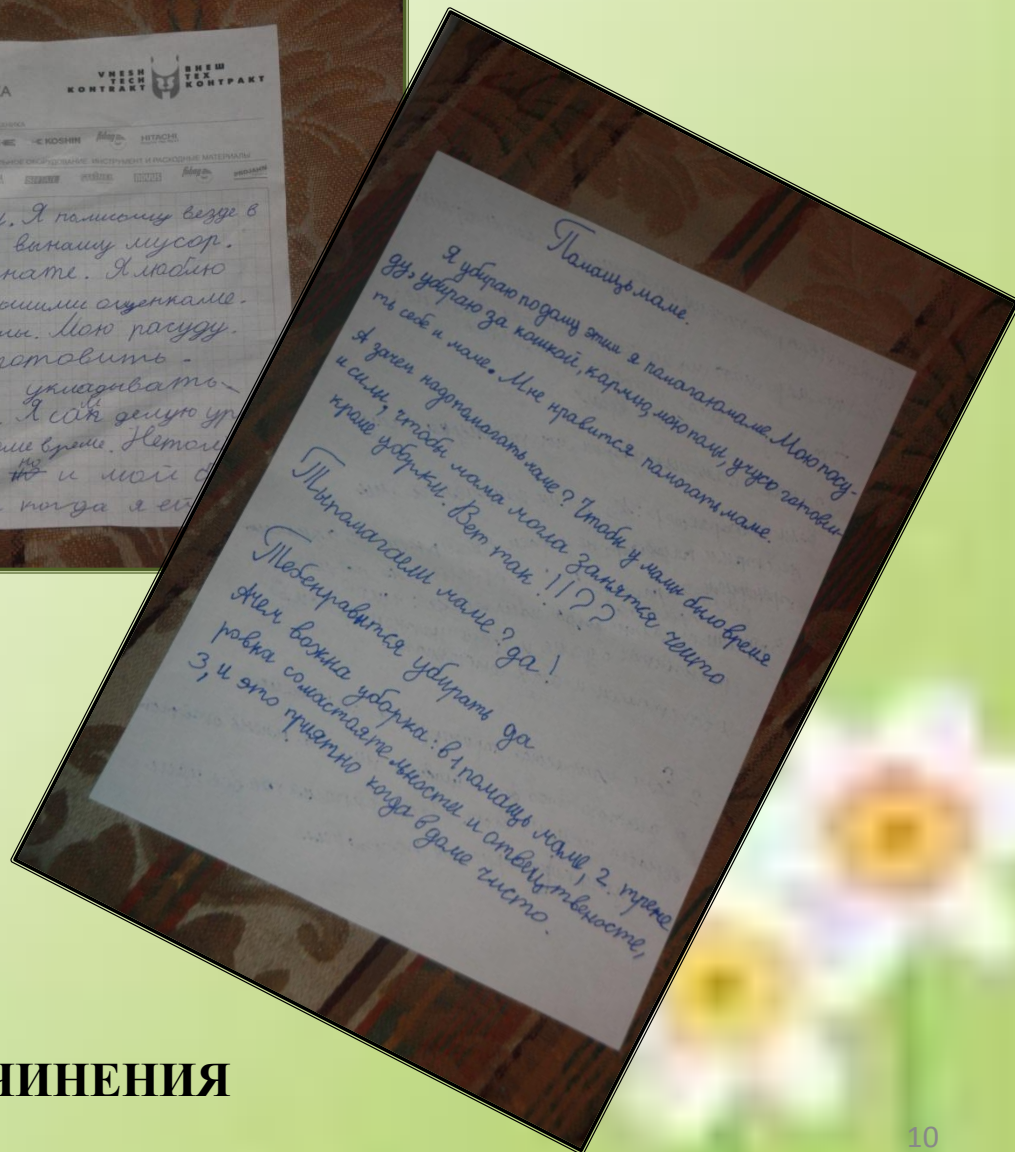 VNESH TECH KONTRAKT
ВНЕШ ТЕХ КОНТРАКТ
А
KOSHIN HITACHI
ОБОРУДОВАНИЕ ИНСТРУМЕНТ И РАСХОДНЫЕ МАТЕРИАЛЫ
Я везде в
вынашу мусор.
нате. Я люблю
ошими оценками.
Мою пасуду.
готовить
укладывать
Я сам делую ур
време. Нетол
и мой б
когда я
Помащь маме.
Я убираю подаму этим я памагаюмаме. Мою посу-
ду, убираю за кошкой, кармлю, мою полы, учусь готови-
ть себе и маме. Мне нравится помогать маме.
А зачем надопамагать маме? Чтобы у мамы было время
и силы, чтобы мама могла занятся чемто
кроме уборки. Вет так!!??
Тыпамагаеш маме? да!
Тебенравится убирать да
Ачем важна уборка: в 1 помащь маме, 2. трене
ровка самастаятельности и отвецтвености,
3, и это приятно когда в доме чисто.
ЧИНЕНИЯ
10